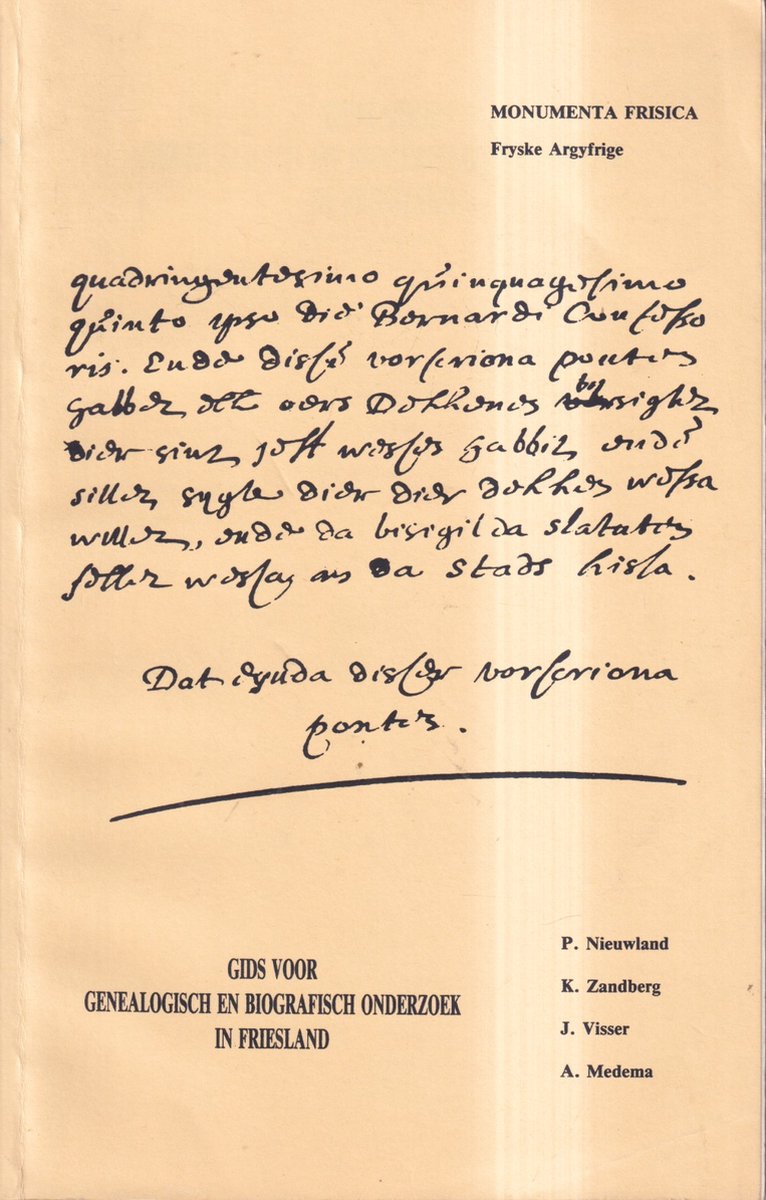 MONUMENTA FRISICA
Fryske Argyfrige
quadringentesimo quinquagesimo
quinto ypso die Bernardi Confesso
ris. Ende disse vorscriona ponten
habbet ell oers Dekkenes bisigler
dier sint jeff wesses habbit ende
sillet sygle dier dier dekken wessa
willet, ende da bisigilda statuten
sellet wessa, an da Stads kissa.
Dat eynda disser vorscriona
ponten.
GIDS VOOR
GENEALOGISCH EN BIOGRAFISCH ONDERZOEK
IN FRIESLAND
P. Nieuwland
K. Zandberg
J. Visser
A. Medema